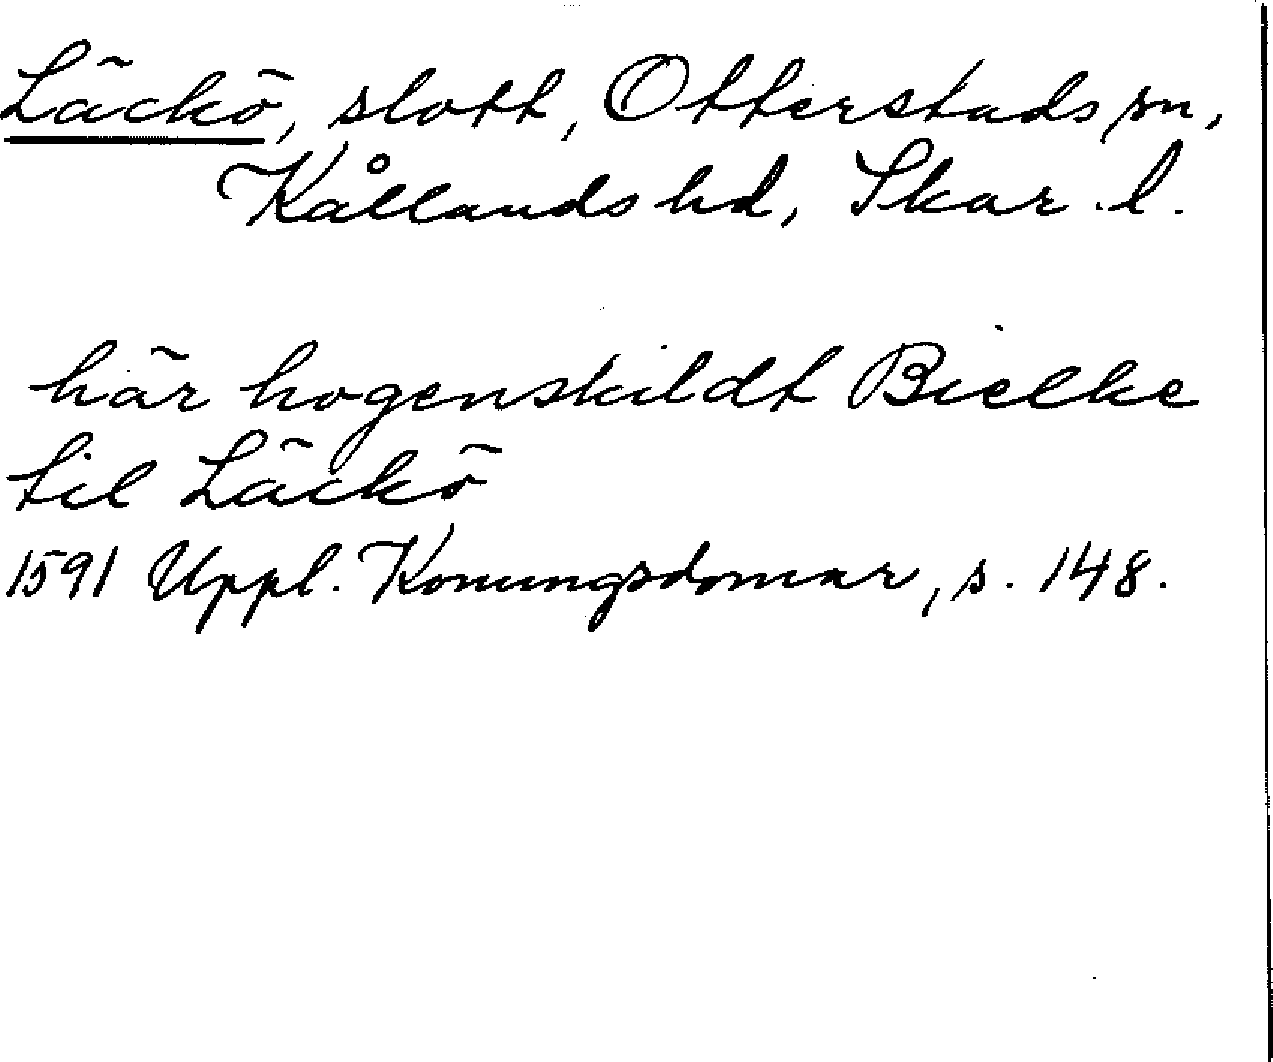 Läckö, slott, Otterstads sn,
Kållands hd, Skar. l.
här hogenskildt Bielke
til Läckö
1591 Uppl. Konungsdomar, s. 148.